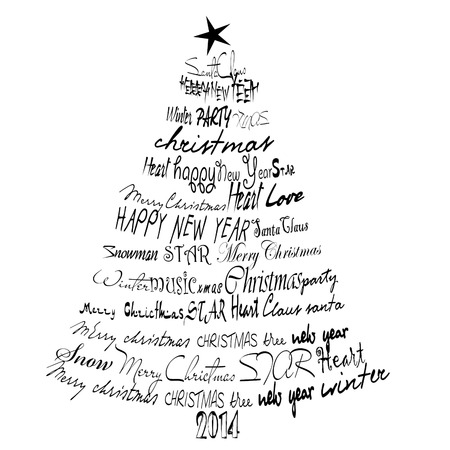 Santa Claus
MERRY NEW YEER
Winter PARTY XMAS
christmas
Heart happy New Year STAR
Merry Christmas Heart Love
HAPPY NEW YEAR Santa Claus
Snowman STAR Merry Christmas
Winter music xmas Christmas party
Merry Christmas STAR Heart Claus santa
Merry christmas CHRISTMAS tree new year
Snow Merry Christmas STAR Heart
Merry christmas CHRISTMAS tree new year winter
2014